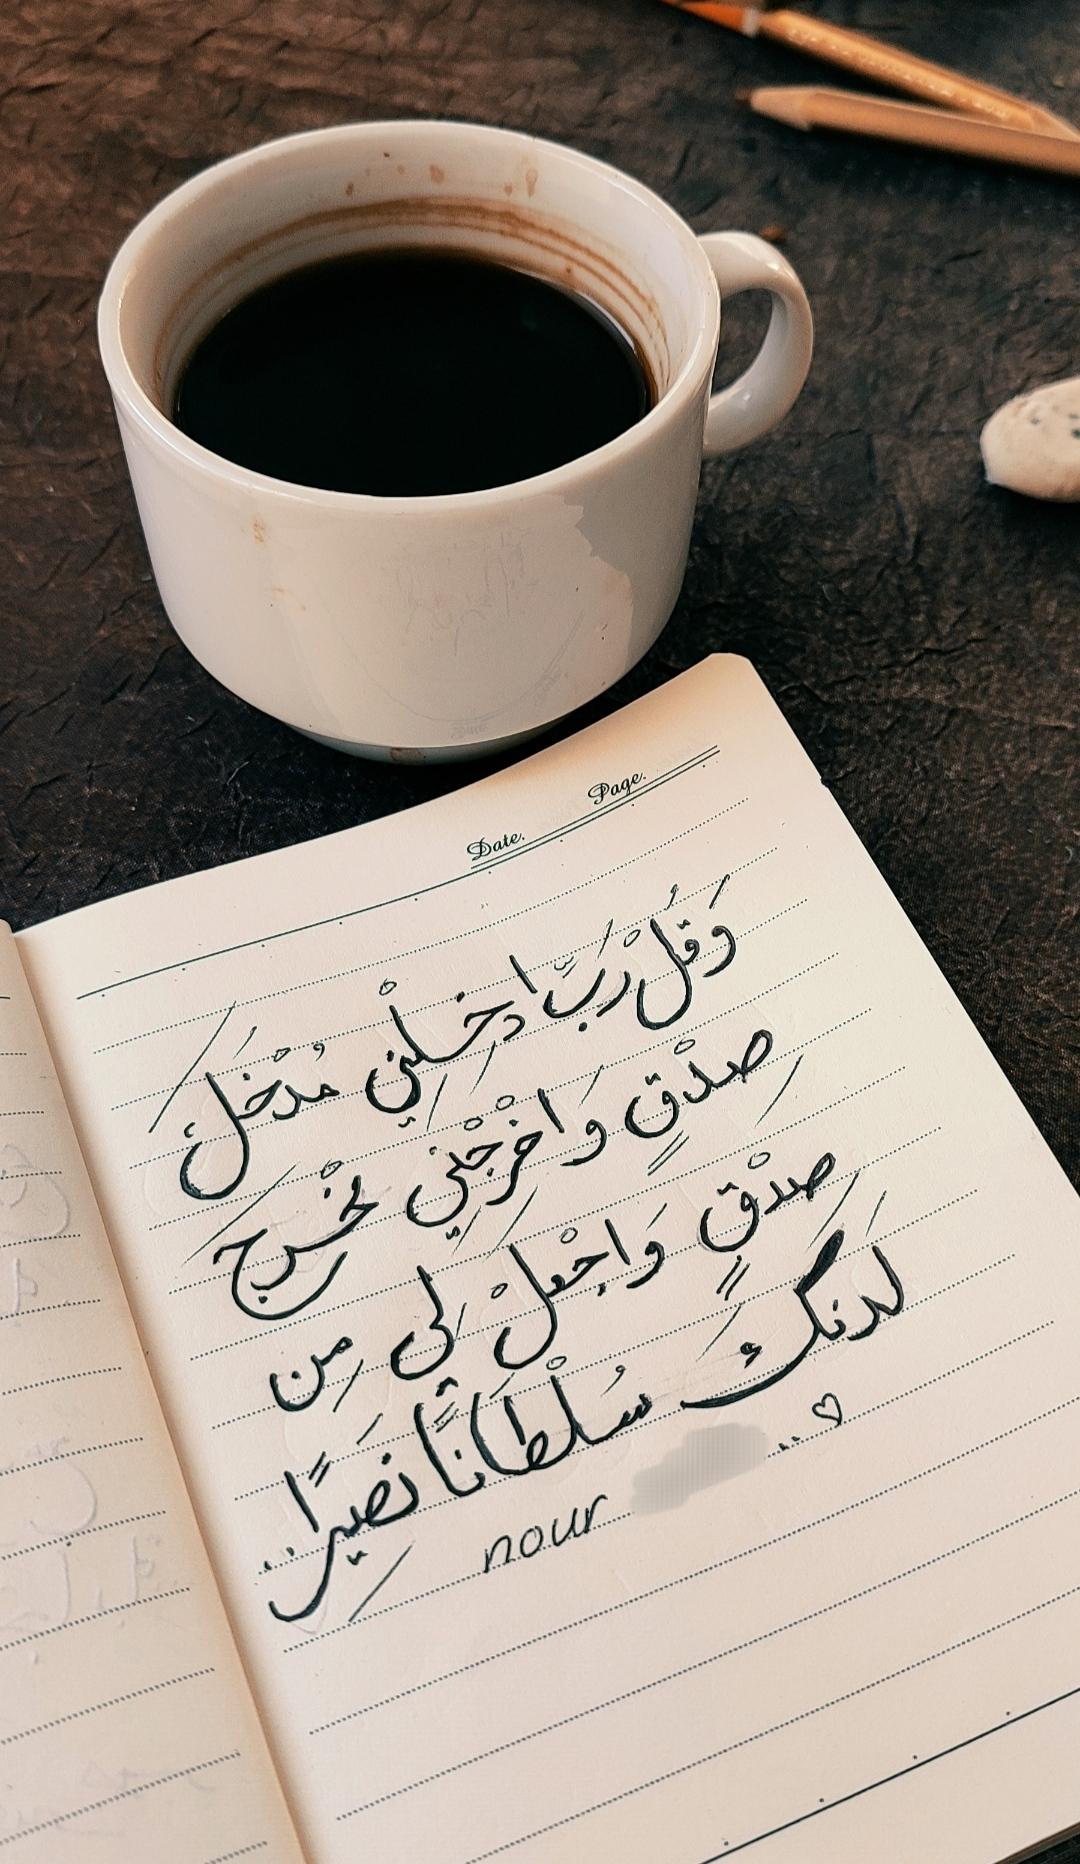 Date.
Page.
وَقُلْ رَبِّ ادخِلْنِي مُدْخَلَ
صِدْقٍ وَاخْرِجْنِي مُخْرَج
صِدْقٍ وَاجْعَلْ لِي مِن
لَدنكَ سُلْطَانًا نَصِيرًا..
nour .. ♡